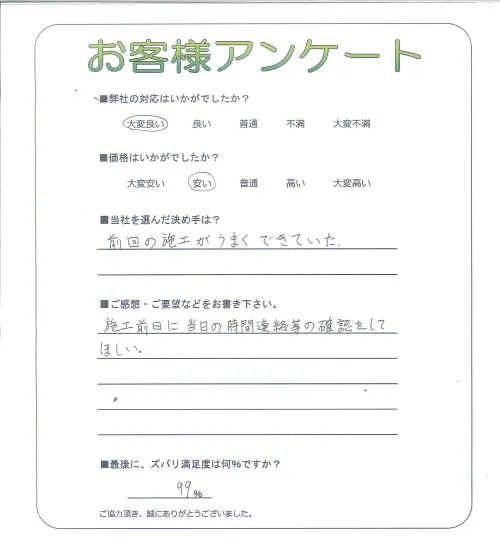 お客様アンケート
■弊社の対応はいかがでしたか？
大変良い 良い 普通 不満 大変不満
■価格はいかがでしたか？
大変安い 安い 普通 高い 大変高い
■当社を選んだ決め手は？
前回の施工がうまくできていた.
■ご感想・ご要望などをお書き下さい。
施工前日に当日の時間連絡等の確認をして
ほしい。
■最後に、ズバリ満足度は何%ですか？
99%
ご協力頂き、誠にありがとうございました。